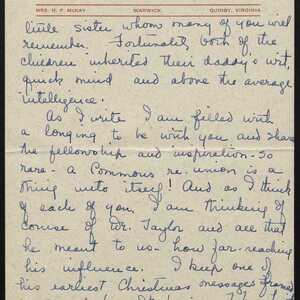 MRS. H. P. McKAY WARWICK QUINBY, VIRGINIA
little sister whom many of you will
remember. Fortunately both of the
children inherited their daddy's wit,
quick mind and above the average
intelligence.
As I write I am filled with
a longing to be with you and share
the fellowship and inspiration - So
rare - a Commons re-union is a
thing unto itself! And as I think
of each of you, I am thinking of
course of Mr. Taylor and all that
he meant to us - how far-reaching
his influence. I keep one of
his earliest Christmas messages framed